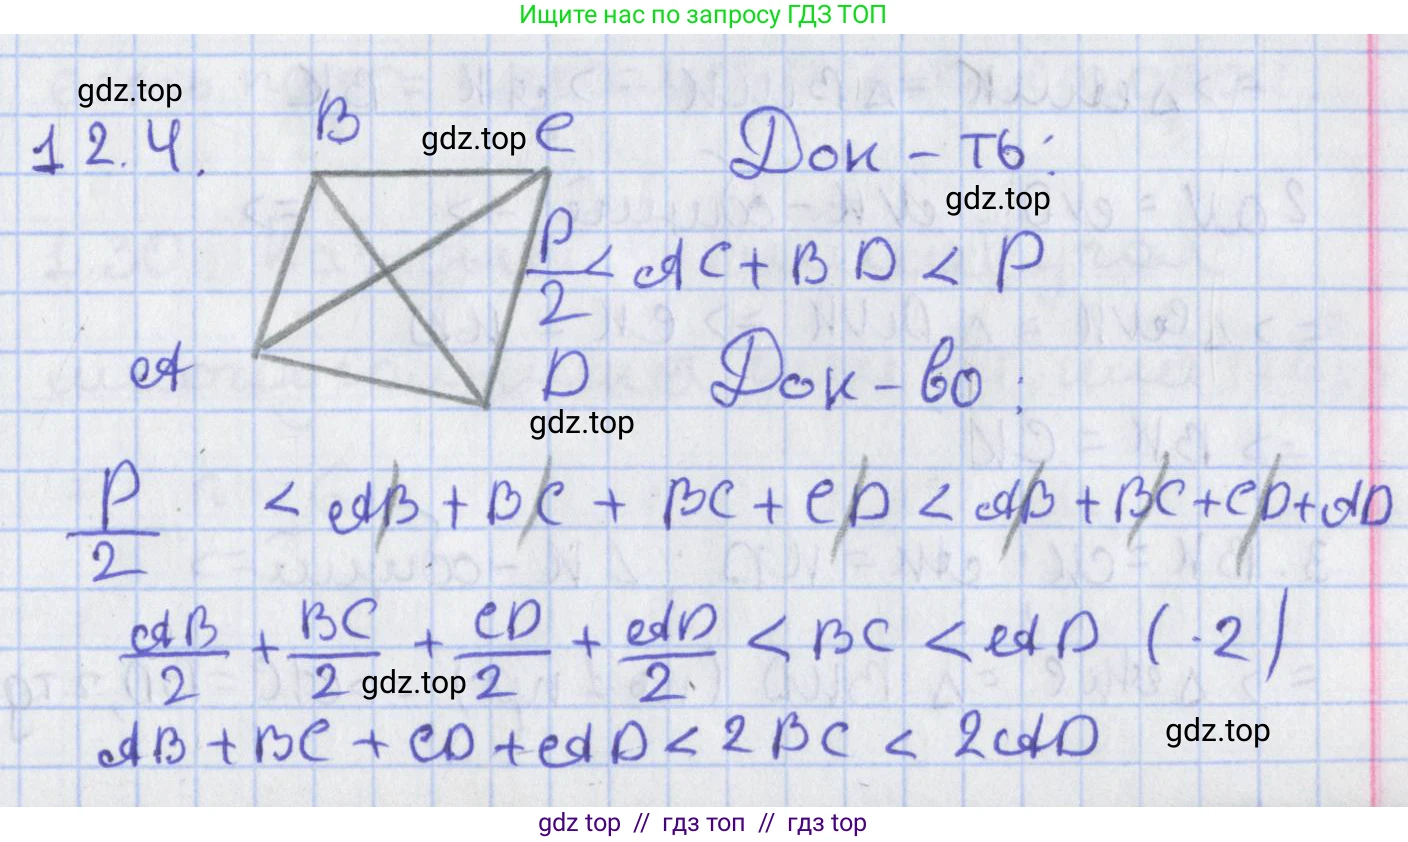 Ищите нас по запросу ГДЗ ТОП
gdz.top
12.4.
B
gdz.top
C
Док-ть:
gdz.top
P/2 < AC + BD < P
A
D
Док-во:
gdz.top
P/2 < AB + BC + BC + CD < AB + BC + CD + AD
AB/2 + BC/2 + CD/2 + AD/2 < BC < AD (·2)
gdz.top
AB + BC + CD + AD < 2BC < 2AD
gdz.top
gdz top // гдз топ // гдз top